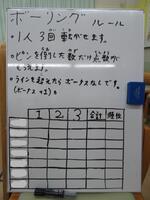 ボーリング ルール
・1人3回転がせます。
・ピンを倒した数だけ点数が
もらえます。
・ラインを超えたらボーナスなしです。
(ボーナス+1)。
1 2 3 合計 順位